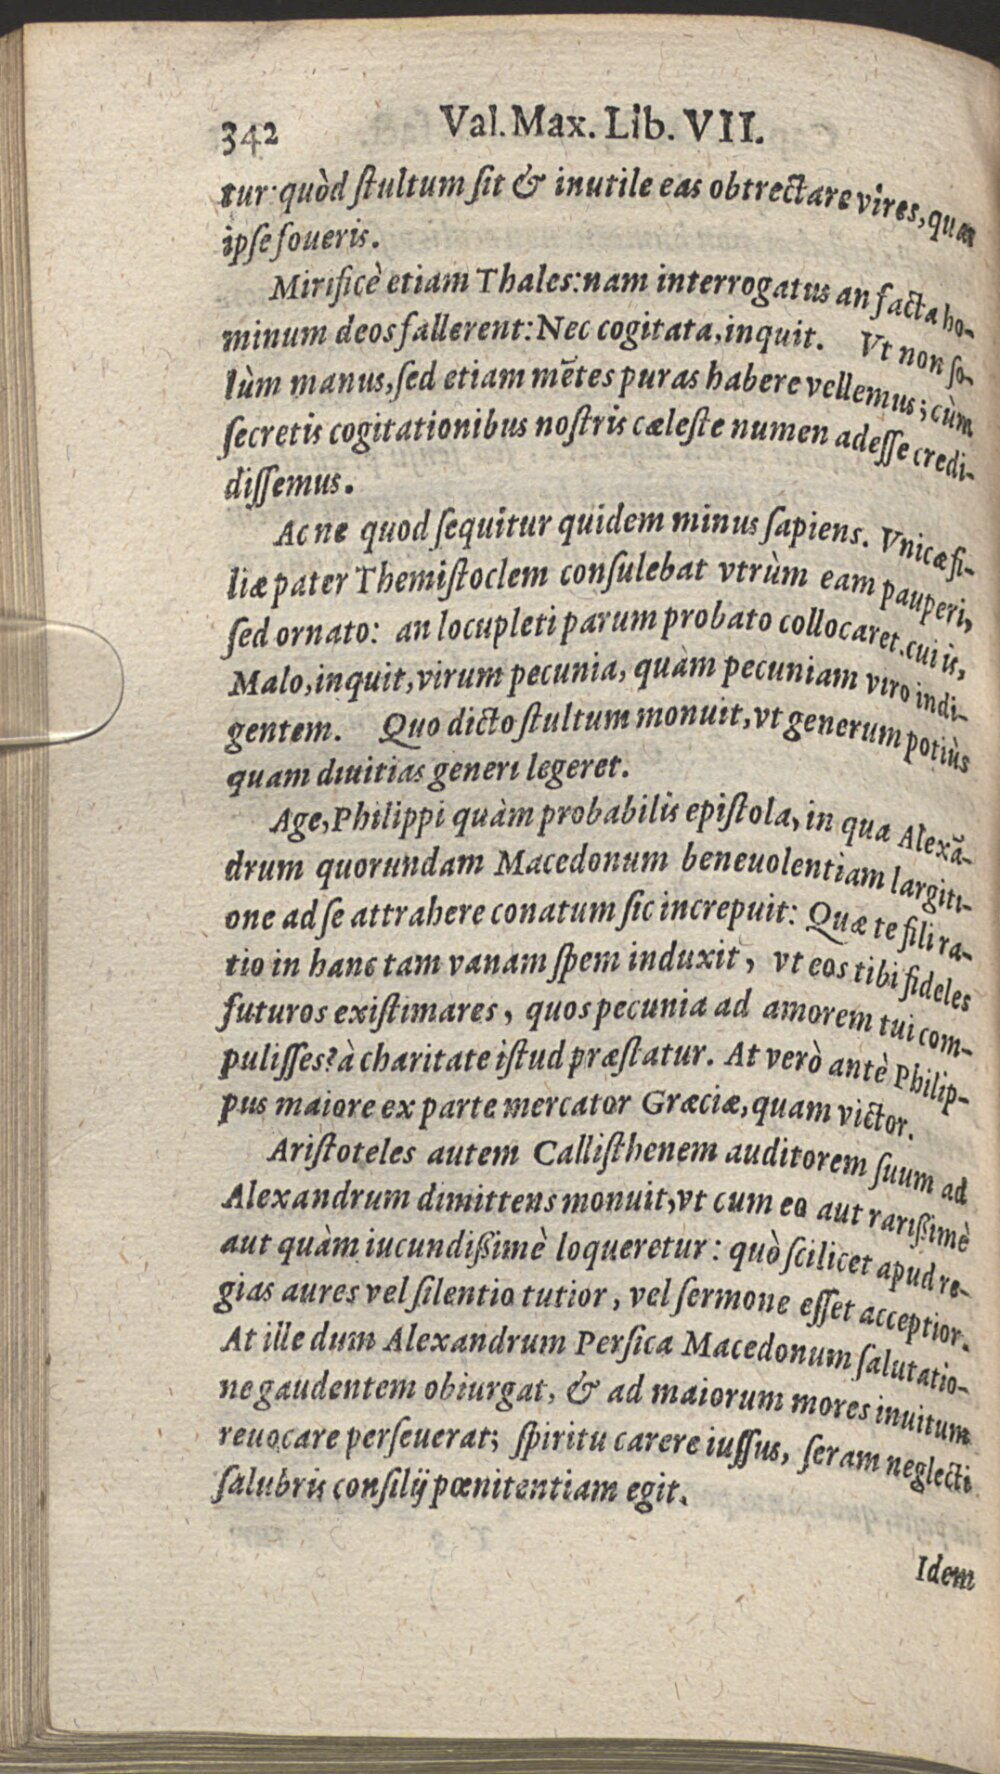 342 Val. Max. Lib. VII.
tur: quòd ſtultum ſit & inutile eas obtrectare vires, quas
ipſe foueris.
Mirificè etiam Thales: nam interrogatus an facta ho-
minum deos fallerent: Nec cogitata, inquit. Vt non ſo-
lùm manus, ſed etiam mẽtes puras habere vellemus; cùm
ſecretis cogitationibus noſtris cæleſte numen adeſſe credi-
diſſemus.
Ac ne quod ſequitur quidem minus ſapiens. Vnicæ fi-
liæ pater Themiſtoclem conſulebat vtrùm eam pauperi,
ſed ornato: an locupleti parum probato collocaret. cui is,
Malo, inquit, virum pecunia, quàm pecuniam viro indi-
gentem. Quo dicto ſtultum monuit, vt generum potiùs
quam diuitias generi legeret.
Age, Philippi quàm probabilis epiſtola, in qua Alexã-
drum quorundam Macedonum beneuolentiam largiti-
one ad ſe attrahere conatum ſic increpuit: Quæ te fili ra-
tio in hanc tam vanam ſpem induxit, vt eos tibi fideles
futuros exiſtimares, quos pecunia ad amorem tui com-
puliſſes? à charitate iſtud præſtatur. At verò antè Philip-
pus maiore ex parte mercator Græciæ, quam victor.
Ariſtoteles autem Calliſthenem auditorem ſuum ad
Alexandrum dimittens monuit, vt cum eo aut rariſſimè
aut quàm iucundiſſimè loqueretur: quò ſcilicet apud re-
gias aures vel ſilentio tutior, vel ſermone eſſet acceptior.
At ille dum Alexandrum Perſica Macedonum ſalutatio-
ne gaudentem obiurgat, & ad maiorum mores inuitum
reuocare perſeuerat; ſpiritu carere iuſſus, ſeram neglecti
ſalubris conſilij pœnitentiam egit.
Idem